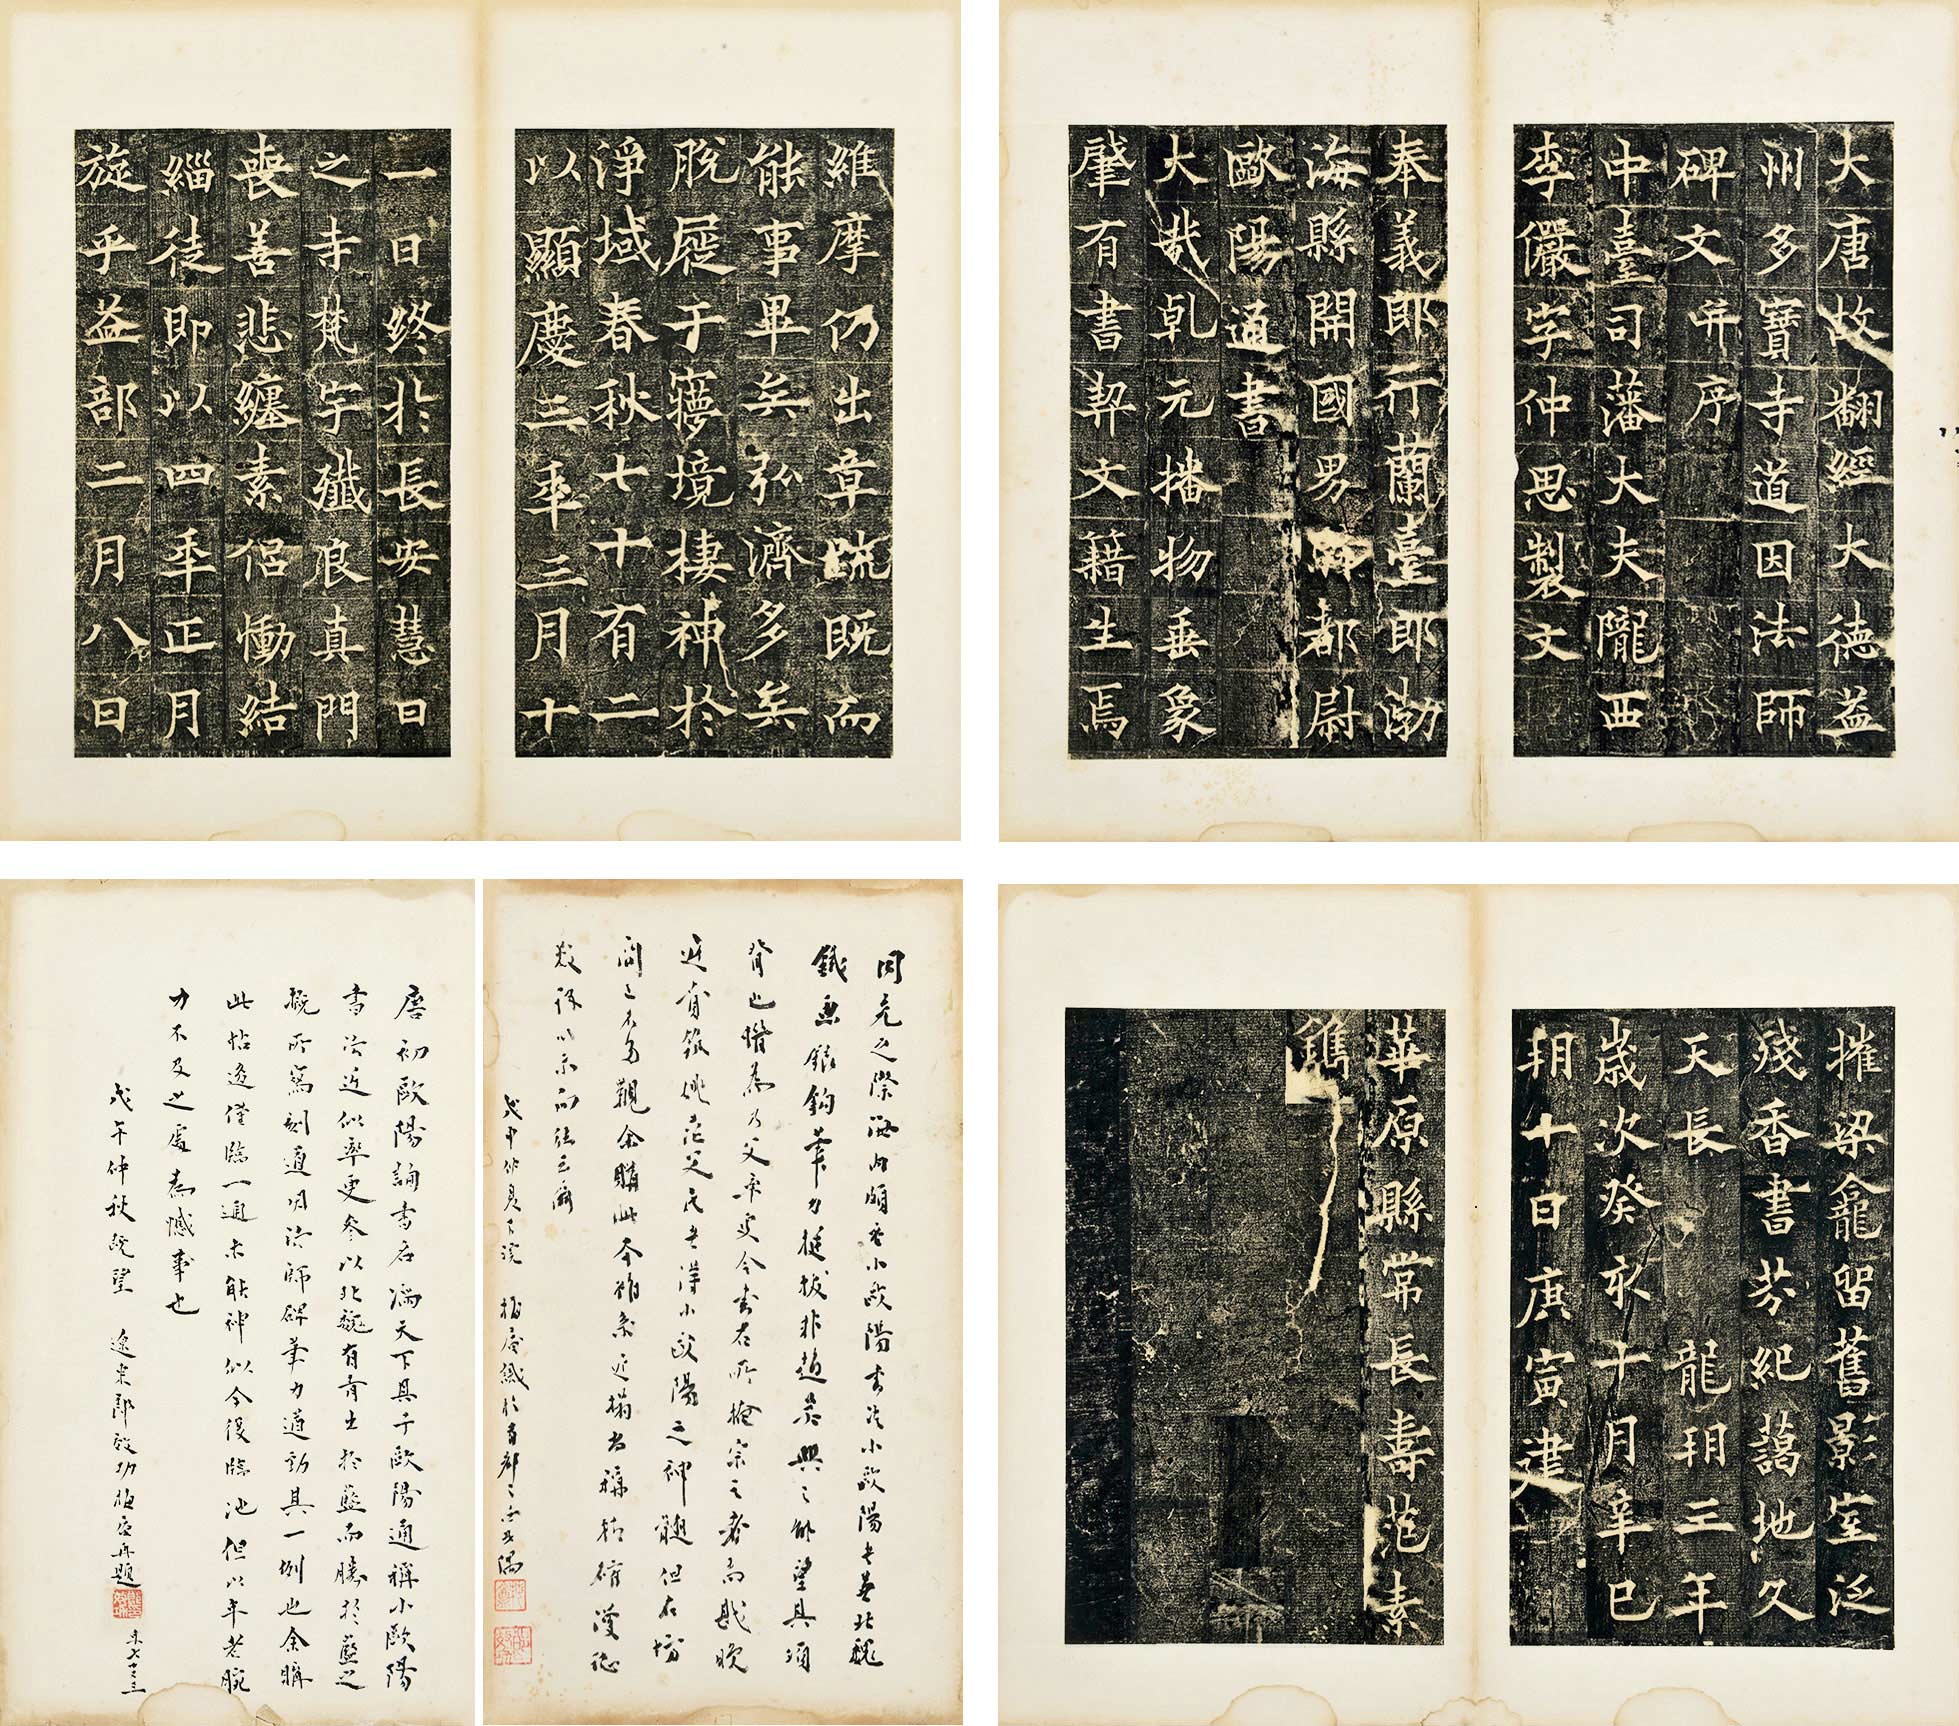 大唐故翻經大德益
州多寶寺道因法師
碑文并序
中臺司藩大夫隴西
李儼字仲思製文
奉義郎行蘭臺郎渤
海縣開國男騎都尉
歐陽通書
大哉乹元播物垂象
肇有書契文籍生焉
維摩仍出章䟽既而
能事畢矣弘濟多矣
脫屣于㝱境棲神於
淨域春秋七十有二
以顯慶三年三月十
一日終於長安慧日
之寺梵宇殲良真門
喪善悲纏素侶慟結
緇徒即以四年正月
旋乎益部二月八日
摧梁龕留舊影室泛
殘香書芬紀藹地久
天長 龍朔三年
歲次癸亥十月辛巳
朔十日庚寅建
華原縣常長壽范素
鐫
同光之際海內頗重小歐陽書法小歐陽書基北魏
鐵畫銀鉤筆力挺拔非趙吳興之能望其項
背也惜為乃父率更令書名所掩宗之者尚尠晚
近有 姚茫父氏甚得小歐陽之神髓但石坊
間不易觀余購此本雖系近搨尚稱精確漫志
數語以示而後
戊申仲夏下浣 梅庵識於首都之西
唐初歐陽詢書名滿天下其子歐陽通稱小歐陽
書法近似率更參以北魏有青出於藍而勝於藍之
概所寫刻道因法師碑筆力遒勁具一例也余購
此帖後僅臨一過未能神似今復臨池但以年老腕
力不及之處為憾事也
戊午仲秋既望 郎 功梅庵再題
年七十三